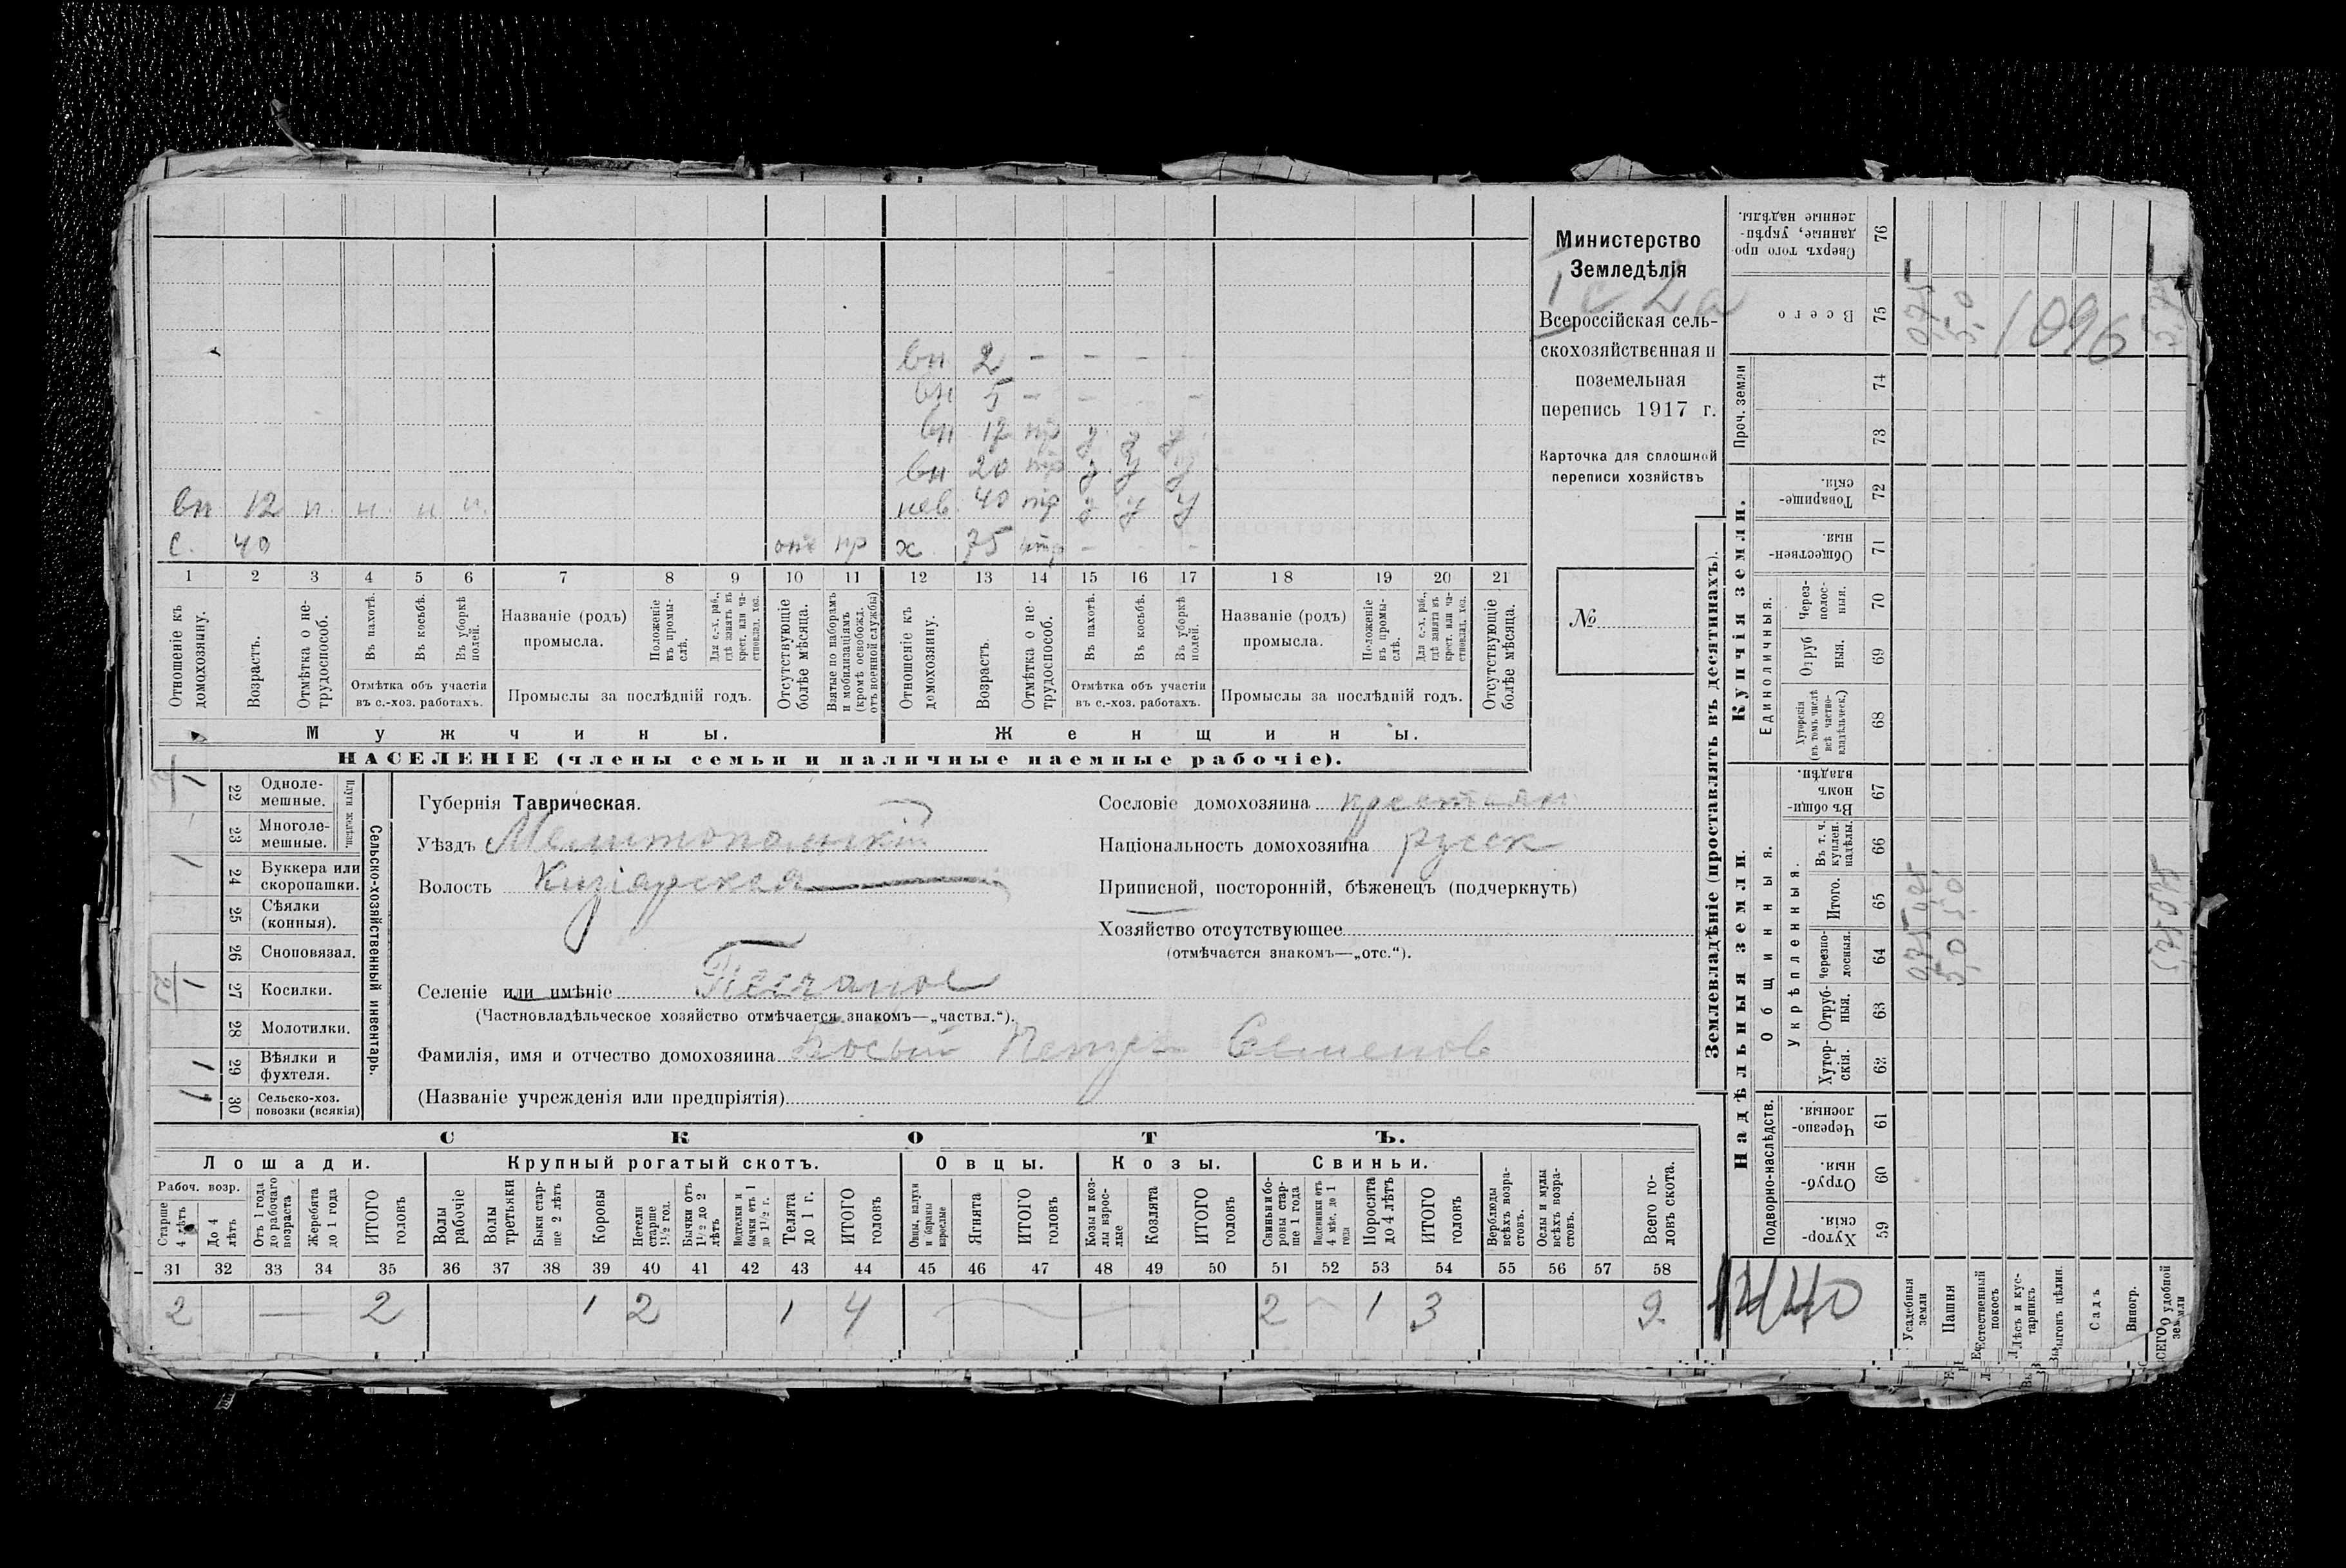 Министерство
Земледѣлія
Всероссійская сель-
скохозяйственная и
поземельная
перепись 1917 г.
Карточка для сплошной
переписи хозяйствъ
№
вн 2 - - - -
вн 5 - - - -
вн 12 пр у у у
вн 20 пр у у у
вн 12 п н н н нев 40 пр у у у
с. 40 пр х 75 - - -
1 2 3 4 5 6 7 8 9 10 11 12 13 14 15 16 17 18 19 20 21
Отношеніе къ домохозяину.
Возрастъ.
Отмѣтка о не-трудоспособ.
Въ пахотѣ.
Въ косьбѣ.
Въ уборкѣ полей.
Отмѣтка объ участіи
въ с.-хоз. работахъ.
Названіе (родъ)
промысла.
Положеніе въ промы-слѣ.
Для с.-х. раб., гдѣ занятъ въ крест. или ча-стновлад. хоз.
Промыслы за послѣдній годъ.
Отсутствующіе болѣе мѣсяца.
Взятые по наборамъ и мобилизаціямъ (кромѣ освобожд. отъ военной службы)
Отношеніе къ домохозяину.
Возрастъ.
Отмѣтка о не-трудоспособ.
Въ пахотѣ.
Въ косьбѣ.
Въ уборкѣ полей.
Отмѣтка объ участіи
въ с.-хоз. работахъ.
Названіе (родъ)
промысла.
Положеніе въ промы-слѣ.
Для с.-х. раб., гдѣ занята въ крест. или ча-стновлад. хоз.
Промыслы за послѣдній годъ.
Отсутствующіе болѣе мѣсяца.
Мужчины. Женщины.
НАСЕЛЕНІЕ (члены семьи и наличные наемные рабочіе).
Сельско-хозяйственный инвентарь.
Плуги желѣзн.
22 Одноле-мешные. 1
23 Многоле-мешные.
24 Буккера или скоропашки. 1
25 Сѣялки (конныя).
26 Сноповязал.
27 Косилки. 1
28 Молотилки.
29 Вѣялки и фухтеля. 1
30 Сельско-хоз. повозки (всякія) 1
Губернія Таврическая.
Уѣздъ Мелитопольскій
Волость Кизіярская
Селеніе или имѣніе Песчаное
(Частновладѣльческое хозяйство отмѣчается знакомъ—„частвл.“).
Фамилія, имя и отчество домохозяина Босый Петръ Семенов
(Названіе учрежденія или предпріятія)
Сословіе домохозяина крестьян
Національность домохозяина русск
Приписной, посторонній, бѣженецъ (подчеркнуть)
Хозяйство отсутствующее
(отмѣчается знакомъ—„отс.“).
СКОТЪ.
Лошади. Крупный рогатый скотъ. Овцы. Козы. Свиньи.
Рабоч. возр.
Старше 4 лѣтъ
До 4 лѣтъ
Отъ 1 года до рабочаго возраста
Жеребята до 1 года
ИТОГО головъ
Волы рабочіе
Волы третьяки
Быки стар-ше 2 лѣтъ
Коровы
Нетели старше 1½ год.
Бычки отъ 1½ до 2 лѣтъ
Нетелки и бычки отъ 1 до 1½ г.
Телята до 1 г.
ИТОГО головъ
Овцы, валухи и бараны взрослые
Ягнята
ИТОГО головъ
Козы и коз-лы взрос-лые
Козлята
ИТОГО головъ
Свиньи и бо-ровы стар-ше 1 года
Подсвинки отъ 4 мѣс. до 1 года
Поросята до 4 лѣтъ
ИТОГО головъ
Верблюды всѣхъ возра-стовъ.
Ослы и мулы всѣхъ возра-стовъ.
Всего го-ловъ скота.
31 32 33 34 35 36 37 38 39 40 41 42 43 44 45 46 47 48 49 50 51 52 53 54 55 56 57 58
2 — 2 1 2 1 4 2 - 1 3 9
Землевладѣніе (проставлять въ десятинахъ).
Надѣльныя земли. Купчія земли.
Проч. земли
Всего
Сверхъ того про-данные, укрѣп-ленные надѣлы.
Подворно-наслѣдств.
Общинныя.
Укрѣпленныя.
Единоличныя.
Хутор-скія. 59
Отруб-ныя. 60
Черезпо-лосныя. 61
Хутор-скія. 62
Отруб-ныя. 63
Черезпо-лосныя. 64
Итого. 65
Въ т. ч. куплен. надѣлы. 66
Въ общин-номъ владѣн. 67
Хуторскія (въ томъ числѣ всѣ частно-владѣльческ.) 68
Отруб-ныя. 69
Через-полос-ныя. 70
Обществен-ныя. 71
Товарище-скія. 72
73
74
75
76
Усадебныя земли
Пашня
Естественный покосъ
Лѣсъ и кус-тарникъ
Выгонъ цѣлин.
Садъ
Виногр.
ВСЕГО удобной земли
075
5,0
1096
5,75